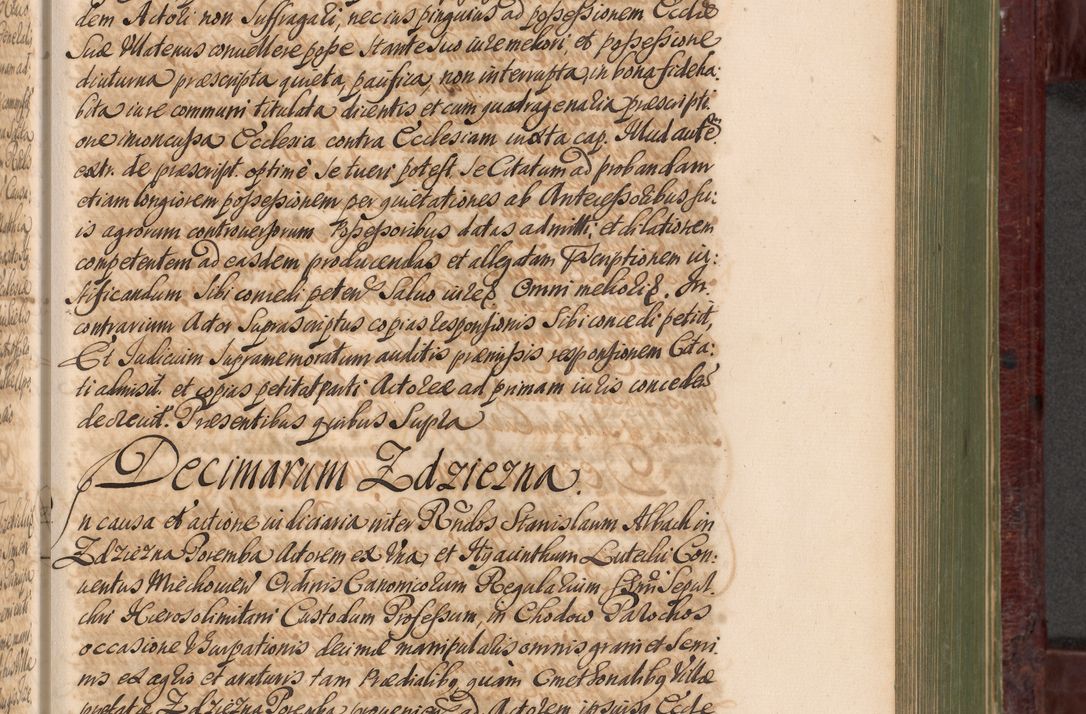 dem Actori non Suffragari, nec ius pinguius ad possessionem Ecclæ
Suæ Vlatenus convellere posse stante suo iure meliori et possessione
diuturna præscripta quieta, pacifica, non interrupta, in bona fide ha:
bita iure communi titulata dicentis et cum quadragenaria præscripti
one inconcussa Ecclesia contra Ecclesiam iuxta cap. Illud aute
extr. de præscript. optimè se tueri potest. Se Citatum ad probandam
etiam longiorem possessionem per quietationes ab Antecessoribus su:
is agrorum controversorum Possessoribus datas admitti, et dilationem
competentem ad easdem producendas et allegatam Præscriptionem iu:
stificandum Sibi concedi peten. Salvo iure Omni melioriq. In
contrarium Actor Suprascriptus copias responsionis Sibi concedi petiit,
Et Iudicium Supramemoratum auditis præmissis responsionem Cita:
ti admisit. et copias petitas parti Actoreæ ad primam iuris concedere
decrevit. Præsentibus quibus Supra
Decimarum Zdziezna.
In causa et actione iudiciaria inter Rndos Stanislaum Albach in
Zdziezna Poremba Actorem ex Vna, et Hyacinthum Con:
uentus Miechouien Ordinis Canonicorum Regularium Ssmi Sepul
chri Hierosolimitani Custodum Professum, in Chodow Parochos
occasione Vsurpationis decimæ manipulalis omnis grani et Semi
nis ex agris et araturis tam Prædialibq quàm Cmethonalibq Villæ
prefatæ Zdziezna Poremba provenien ad Actorem ipsiusq Eccle